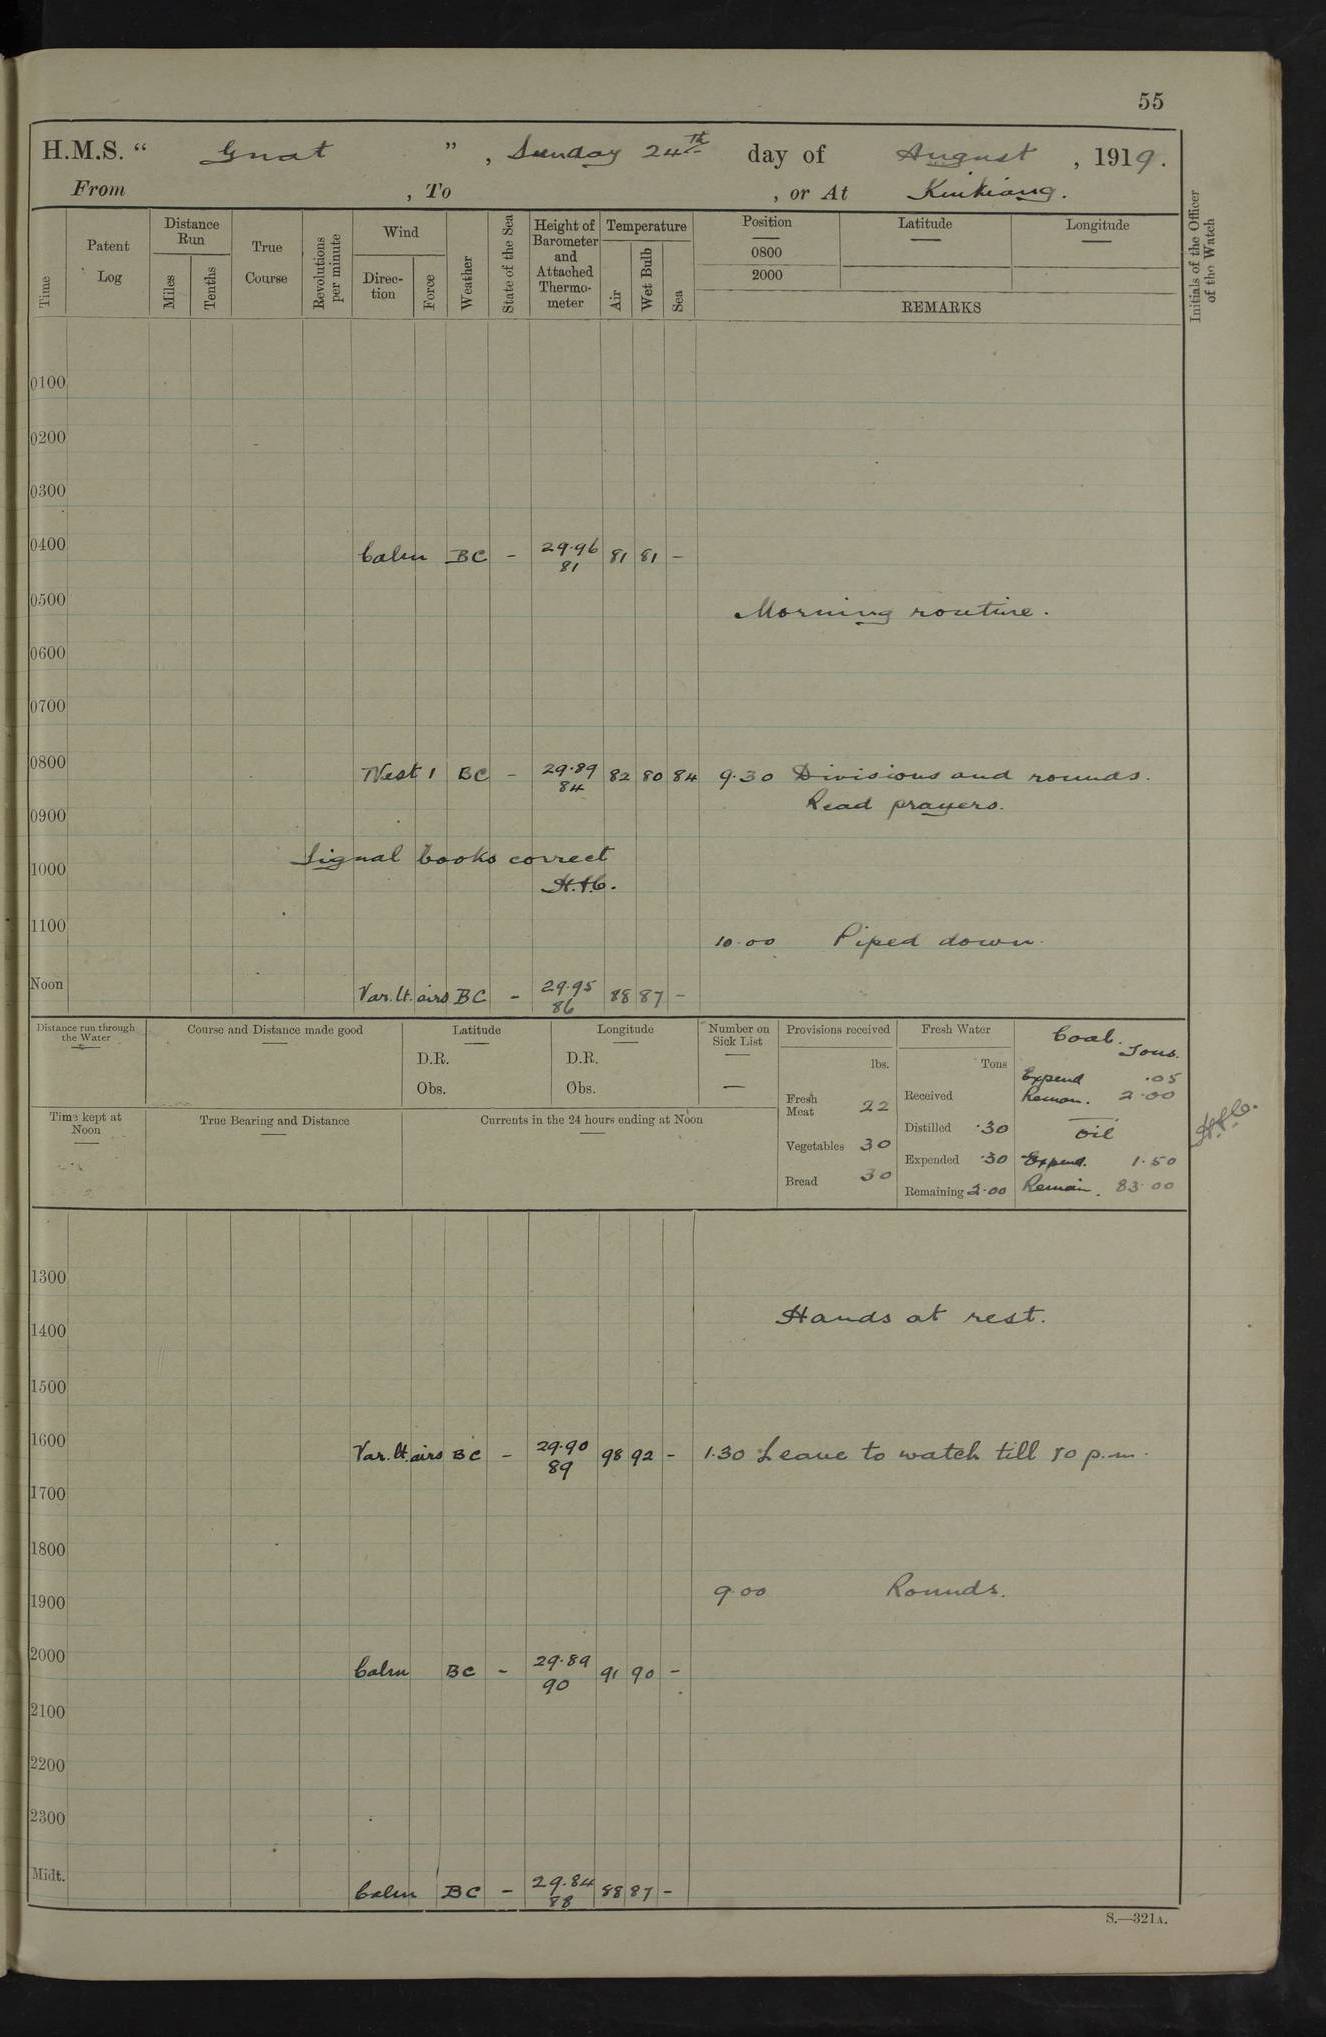 55
H.M.S. “ Gnat ” , Sunday 24th day of August , 1919.
From , To , or At Kiukiang.
Time
Patent Log
Distance Run
Miles
Tenths
True Course
Revolutions per minute
Wind
Direc-tion
Force
Weather
State of the Sea
Height of Barometer and Attached Thermo-meter
Temperature
Air
Wet Bulb
Sea
Position
0800
2000
Latitude
Longitude
REMARKS
Initials of the Officer of the Watch
0100
0200
0300
0400 Calm BC - 29.96 81 81 81 -
0500 Morning routine.
0600
0700
0800 West 1 BC - 29.89 84 82 80 84 9.30 Divisions and rounds.
Read prayers.
0900
Signal books correct
1000
1100
10.00 Piped down.
Noon Var. lt. airs BC - 29.95 86 88 87 -
Distance run through the Water
Course and Distance made good
Latitude
D.R.
Obs.
Longitude
D.R.
Obs.
Number on Sick List
—
Time kept at Noon
True Bearing and Distance
Currents in the 24 hours ending at Noon
Provisions received
lbs.
Fresh Meat 22
Vegetables 30
Bread 30
Fresh Water
Tons
Received
Distilled .30
Expended .30
Remaining 2.00
Coal.
Tons.
Expend .05
Remain. 2.00
Oil
Expend. 1.50
Remain. 83.00
1300
Hands at rest.
1400
1500
1600 Var. lt. airs BC - 29.90 89 98 92 - 1.30 Leave to watch till 10 p.m.
1700
1800
9.00 Rounds.
1900
2000 Calm BC - 29.89 90 91 90 -
2100
2200
2300
Midt. Calm BC - 29.84 88 88 87 -
S.—321A.